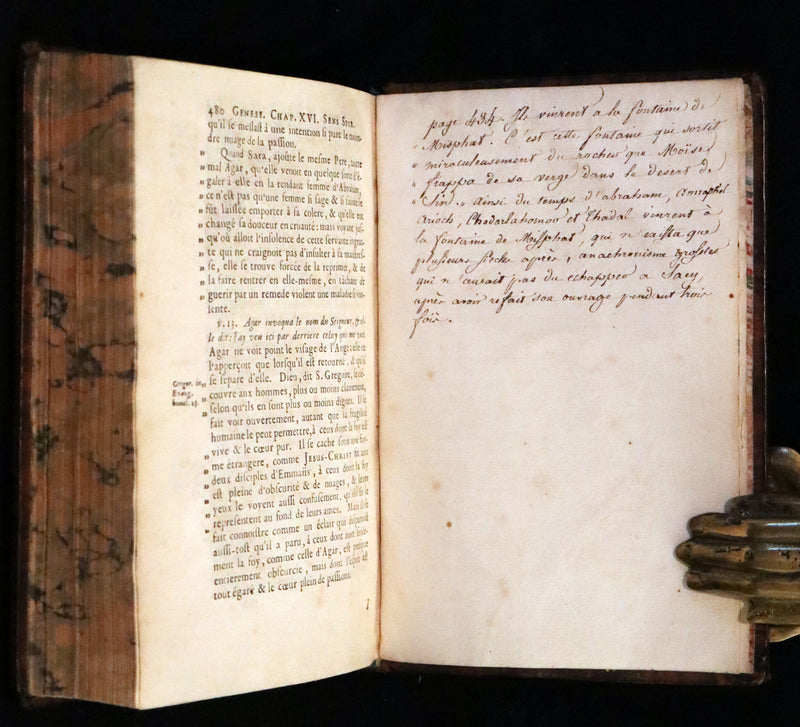 480 GENESE. CHAP. XVI. SENS SPIR.
qu'il se meslast à une intention si pure le moin-
dre nuage de la passion.
" Quand Sara, ajoûte le mesme Pere, traite
" mal Agar, qu'elle venoit en quelque sorte d'é-
" galer à elle en la rendant femme d'Abraham,
" ce n'est pas qu'une femme si sage & si sainte se
" fût laissée emporter à sa colere, & qu'elle eût
" changé sa douceur en cruauté: mais voyant jus-
" qu'où alloit l'insolence de cette servante ingra-
" te qui ne craignoit pas d'insulter à sa maistres-
" se, elle se trouve forcée de la reprimer, & de
" la faire rentrer en elle-mesme, en tâchant de
" guerir par un remede violent une maladie si vio-
lente.
v. 13. Agar invoqua le nom du Seigneur, & el-
le dit: J'ay veu ici par derriere celuy qui me voit.
Agar ne voit point le visage de l'Ange; elle ne
l'apperçoit que lorsqu'il est retourné, & qu'il
se separe d'elle. Dieu, dit S. Gregoire, se dé-
Gregor. in
Evang.
homil. 23.
couvre aux hommes, plus ou moins clairement,
selon qu'ils en sont plus ou moins dignes. Il se
fait voir ouvertement, autant que la fragilité
humaine le peut permettre, à ceux dont la foy est
vive & le cœur pur. Il se cache sous une for-
me étrangere, comme JESUS-CHRIST fit aux
deux disciples d'Emmaüs, à ceux dont la foy
est pleine d'obscurité & de nuages, & leurs
yeux le voyent aussi confusément, qu'ils se le
representent au fond de leurs ames. Mais il se
fait connoistre comme un éclair qui disparoist
aussi-tost qu'il a paru, à ceux dont non seule-
ment la foy, comme celle d'Agar, est presque
entierement obscurcie, mais dont l'esprit est
tout égaré & le cœur plein de passions.
page 434. Ils vinrent a la fontaine de
" Misphat. C'est cette fontaine qui sortit
" miraculeusement du rocher que Moïse
" frappa de sa verge dans le desert de
" Sin. " ainsi du temps d'abraham, amraphel
arioch, Chodorlahomor et Thadal vinrent à
la fontaine de Misphat, qui n'exista que
plusieurs siecles après; anachronisme grossier
qui n'aurait pas du echapper a Sacy,
après avoir refait son ouvrage pendant trois
fois.